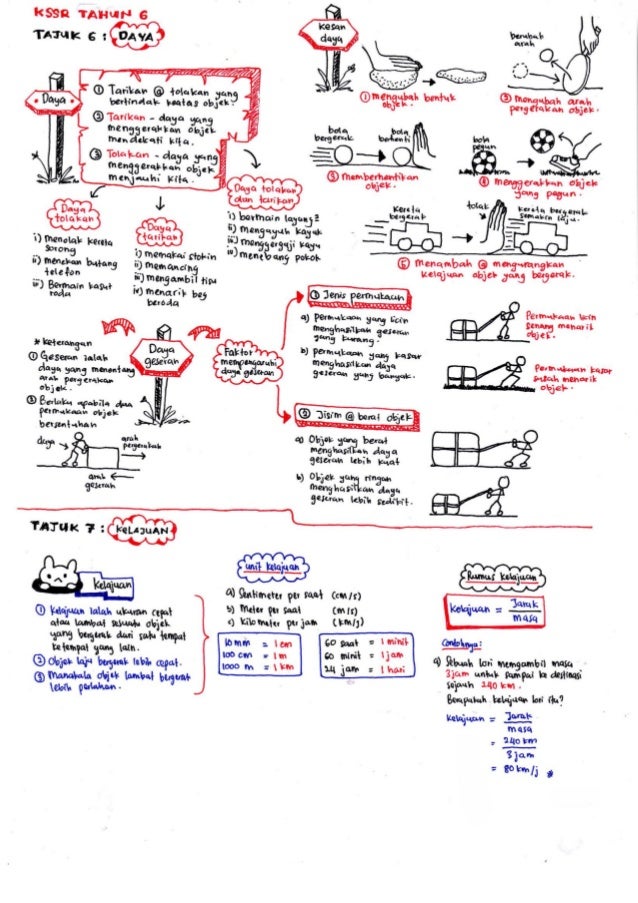 KSSR TAHUN 6
TAJUK 6 : DAYA
Daya
① Tarikan @ tolakan yang
bertindak keatas objek.
② Tarikan - daya yang
menggerakkan objek
mendekati kita.
③ Tolakan - daya yang
menggerakkan objek
menjauhi kita.
Daya
tolakan
i) menolak kereta
sorong
ii) menekan butang
telefon
iii) Bermain kasut
roda
Daya
tarikan
i) memakai stokin
ii) memancing
iii) mengambil tisu
iv) menarik beg
beroda
Daya tolakan
dan tarikan
i) bermain layang²
ii) mengayuh kayak
iii) menggergaji kayu
iv) menebang pokok
kesan
daya
① mengubah bentuk
objek.
berubah
arah
② mengubah arah
pergerakan objek.
bola
bergerak
bola
berhenti
③ memberhentikan
objek.
bola
pegun
④ menggerakkan objek
yang pegun.
kereta
bergerak
tolak
kereta bergerak
semakin laju.
⑤ menambah @ mengurangkan
kelajuan objek yang bergerak.
Daya
geseran
* keterangan
① Geseran ialah
daya yang menentang
arah pergerakan
objek.
② Berlaku apabila dua
permukaan objek
bersentuhan
daya
arah
pergerakan
arah
geseran
Faktor
mempengaruhi
daya geseran
① Jenis permukaan
a) permukaan yang licin
menghasilkan geseran
yang kurang.
b) permukaan yang kasar
menghasilkan daya
geseran yang banyak.
Permukaan licin
senang menarik
objek.
Permukaan kasar
susah menarik
objek.
② Jisim @ berat objek
a) Objek yang berat
menghasilkan daya
geseran lebih kuat
b) Objek yang ringan
menghasilkan daya
geseran lebih sedikit.
TAJUK 7 : KELAJUAN
kelajuan
① kelajuan ialah ukuran cepat
atau lambat sesuatu objek
yang bergerak dari satu tempat
ke tempat yang lain.
② Objek laju bergerak lebih cepat.
③ manakala objek lambat bergerak
lebih perlahan.
unit kelajuan
a) Sentimeter per saat (cm/s)
b) Meter per saat (m/s)
c) kilometer per jam (km/j)
10 mm = 1 cm
100 cm = 1 m
1000 m = 1 km
60 saat = 1 minit
60 minit = 1 jam
24 jam = 1 hari
Rumus kelajuan
kelajuan = Jarak
masa
Contohnya:
a) Sebuah lori mengambil masa
3 jam untuk sampai ke destinasi
sejauh 240 km.
Berapakah kelajuan lori itu?
kelajuan = Jarak
masa
= 240 km
3 jam
= 80 km/j *